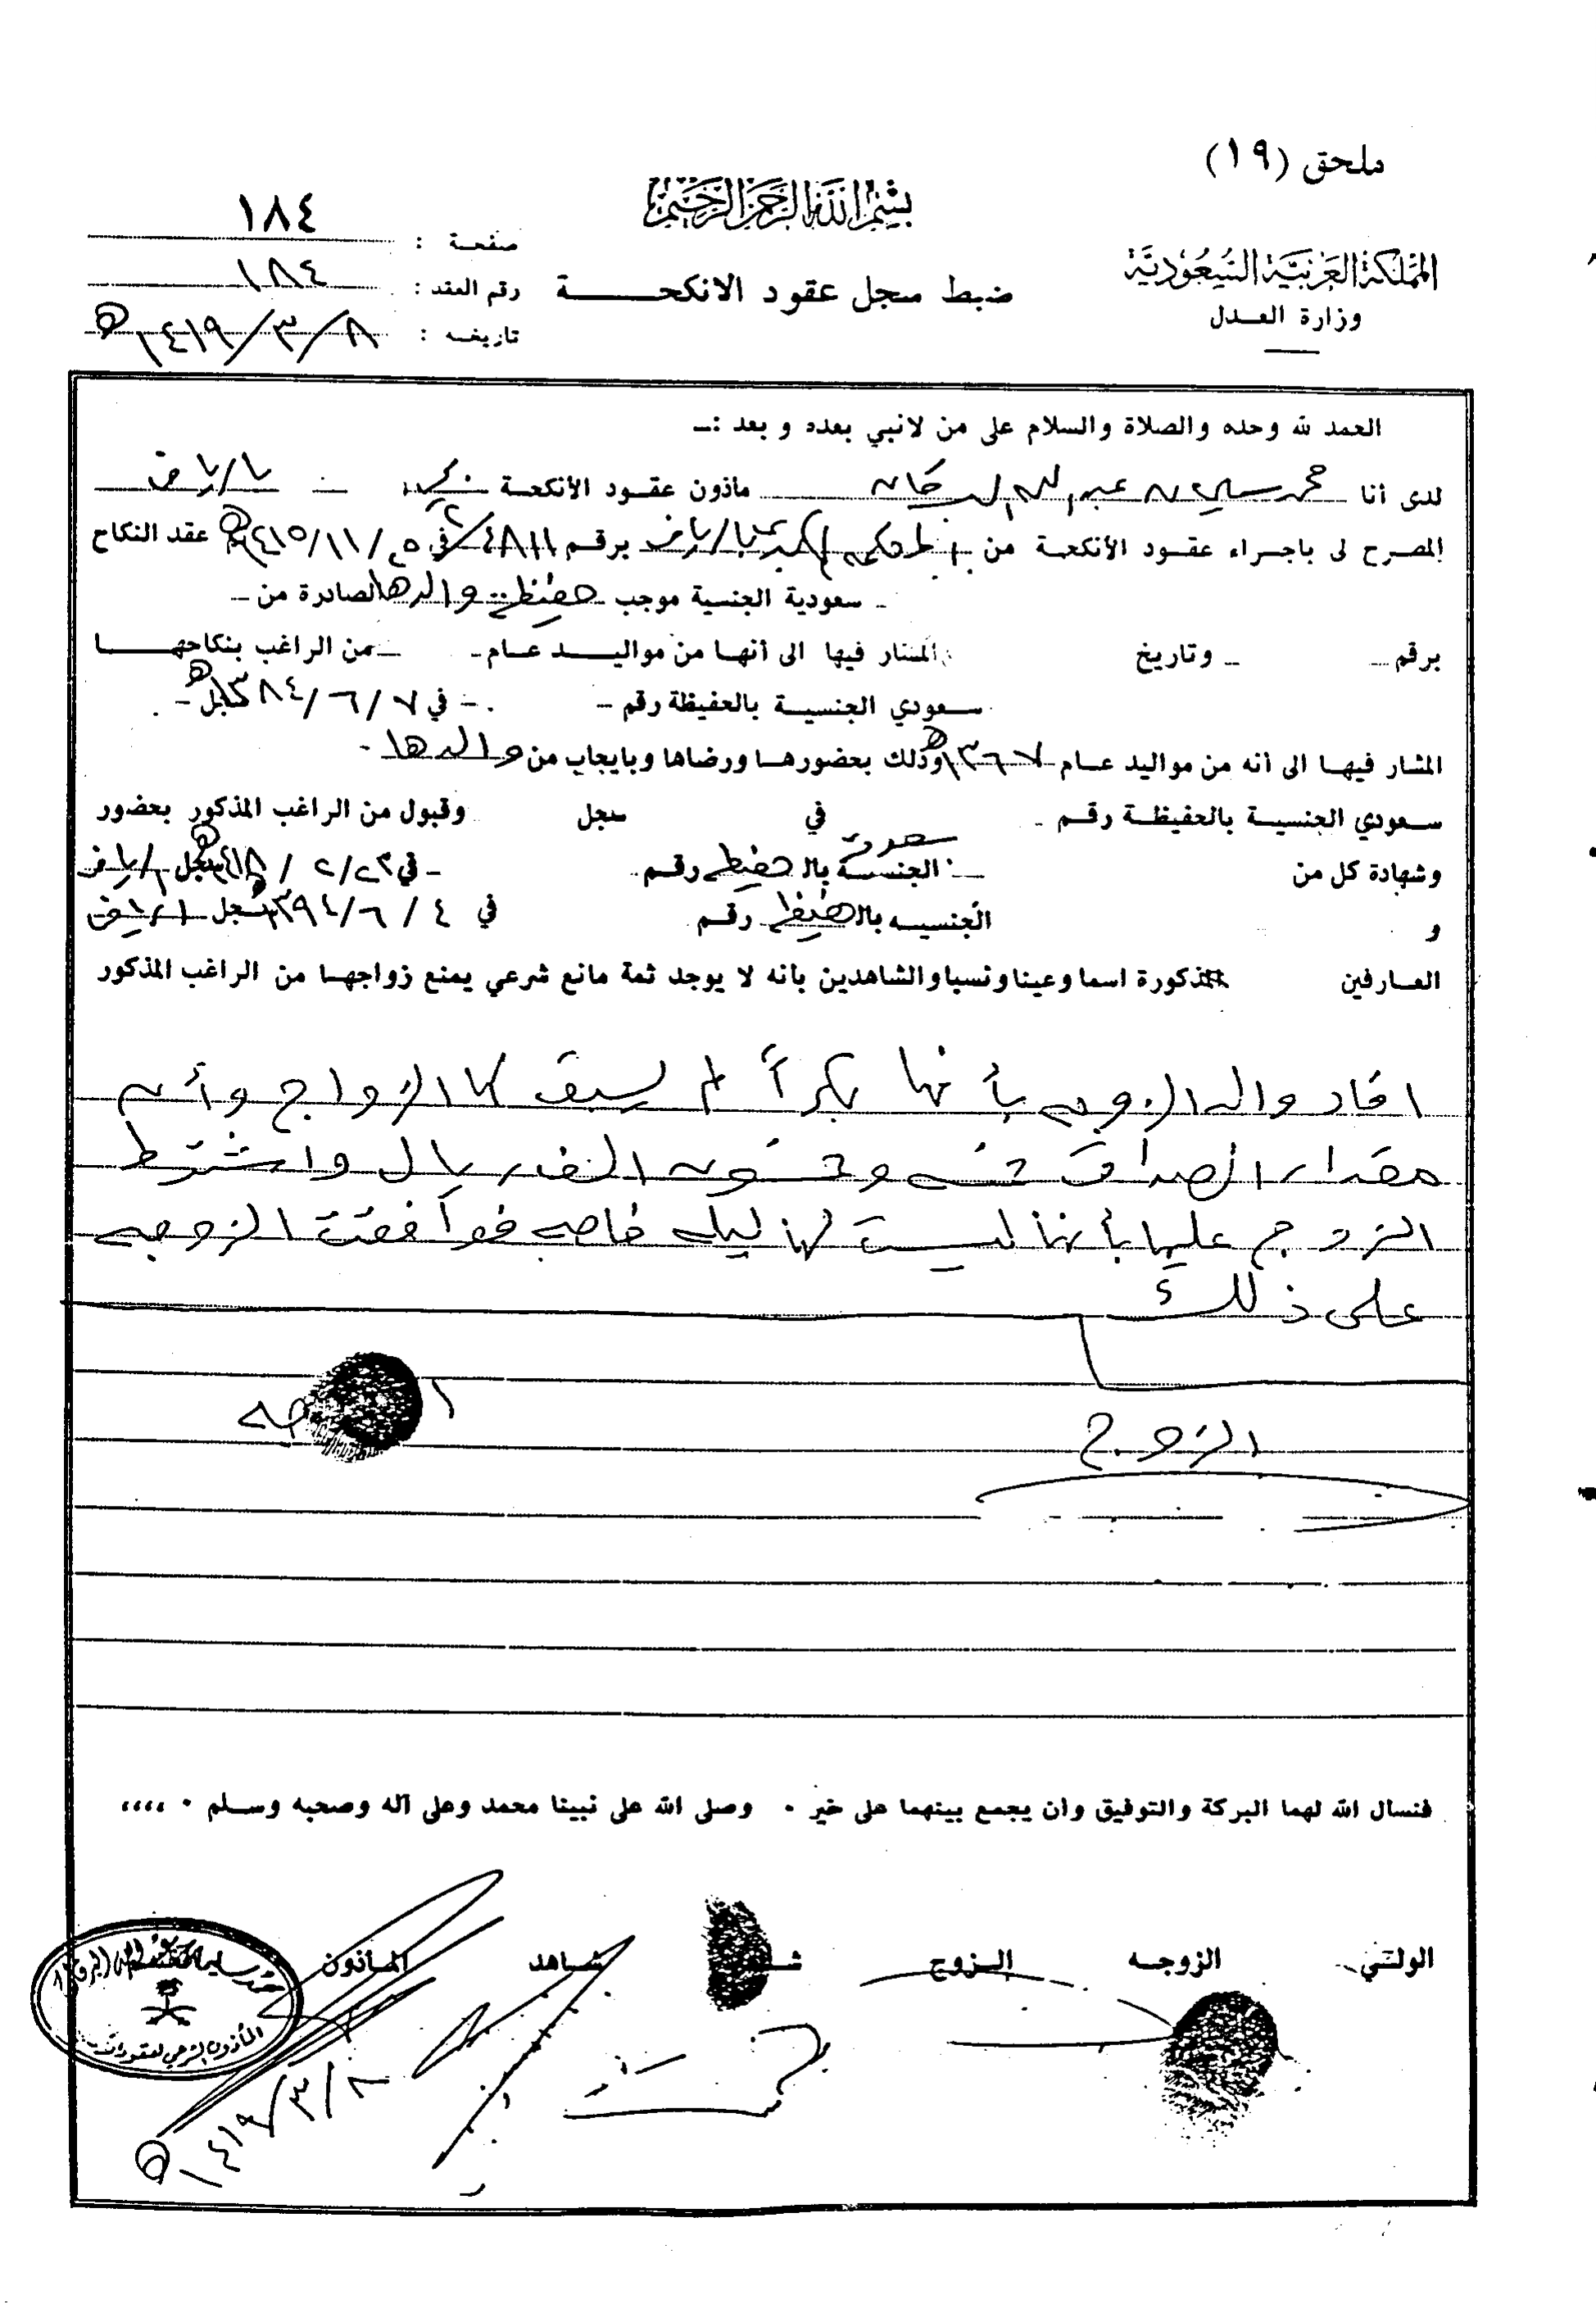 ملحق (١٩)
بسم الله الرحمن الرحيم
المملكة العربية السعودية
وزارة العدل
ضبط سجل عقود الانكحة
صفحة : ١٨٤
رقم العقد : ١٨٤
تاريخه : ١٤١٩/٣/٨ هـ
الحمد لله وحده والصلاة والسلام على من لانبي بعده و بعد :ـ
لدى أنا محمد سليمان عبد الله ماذون عقود الأنكحة بالرياض
المصرح لى باجراء عقود الأنكحة من بالرياض برقم في ١٤١٥/١١/ هـ عقد النكاح
سعودية الجنسية موجب حفيظة والدها الصادرة من
برقم وتاريخ المشار فيها الى أنها من مواليد عام من الراغب بنكاحها
سعودي الجنسية بالحفيظة رقم - في ٧/٦/٨٤ سجل
المشار فيها الى أنه من مواليد عام ١٣٦٧ هـ وذلك بحضورها ورضاها وبايجاب من والدها
سعودي الجنسية بالحفيظة رقم - في سجل وقبول من الراغب المذكور بحضور
وشهادة كل من الجنسية بالحفيظة رقم في سجل الرياض
و الجنسيه بالحفيظة رقم في ٤/٦/ سجل الرياض
العارفين المذكورة اسما وعينا ونسبا والشاهدين بانه لا يوجد ثمة مانع شرعي يمنع زواجها من الراغب المذكور
افاد والد الزوجه بأنها بكراً لم يسبق لها الزواج وأنه
مقدار الصداق خمسه وخمسون الف ريال واشترط
الزوج عليها بأنها ليست لها ليله خاصه فوافقت الزوجه
على ذلك
الزوج
فنسال الله لهما البركة والتوفيق وان يجمع بينهما على خير ٠ وصلى الله على نبينا محمد وعلى آله وصحبه وسلم ٠ ،،،،
الولي الزوجه الزوج شاهد المأذون
١٤١٩/٣/٨ هـ